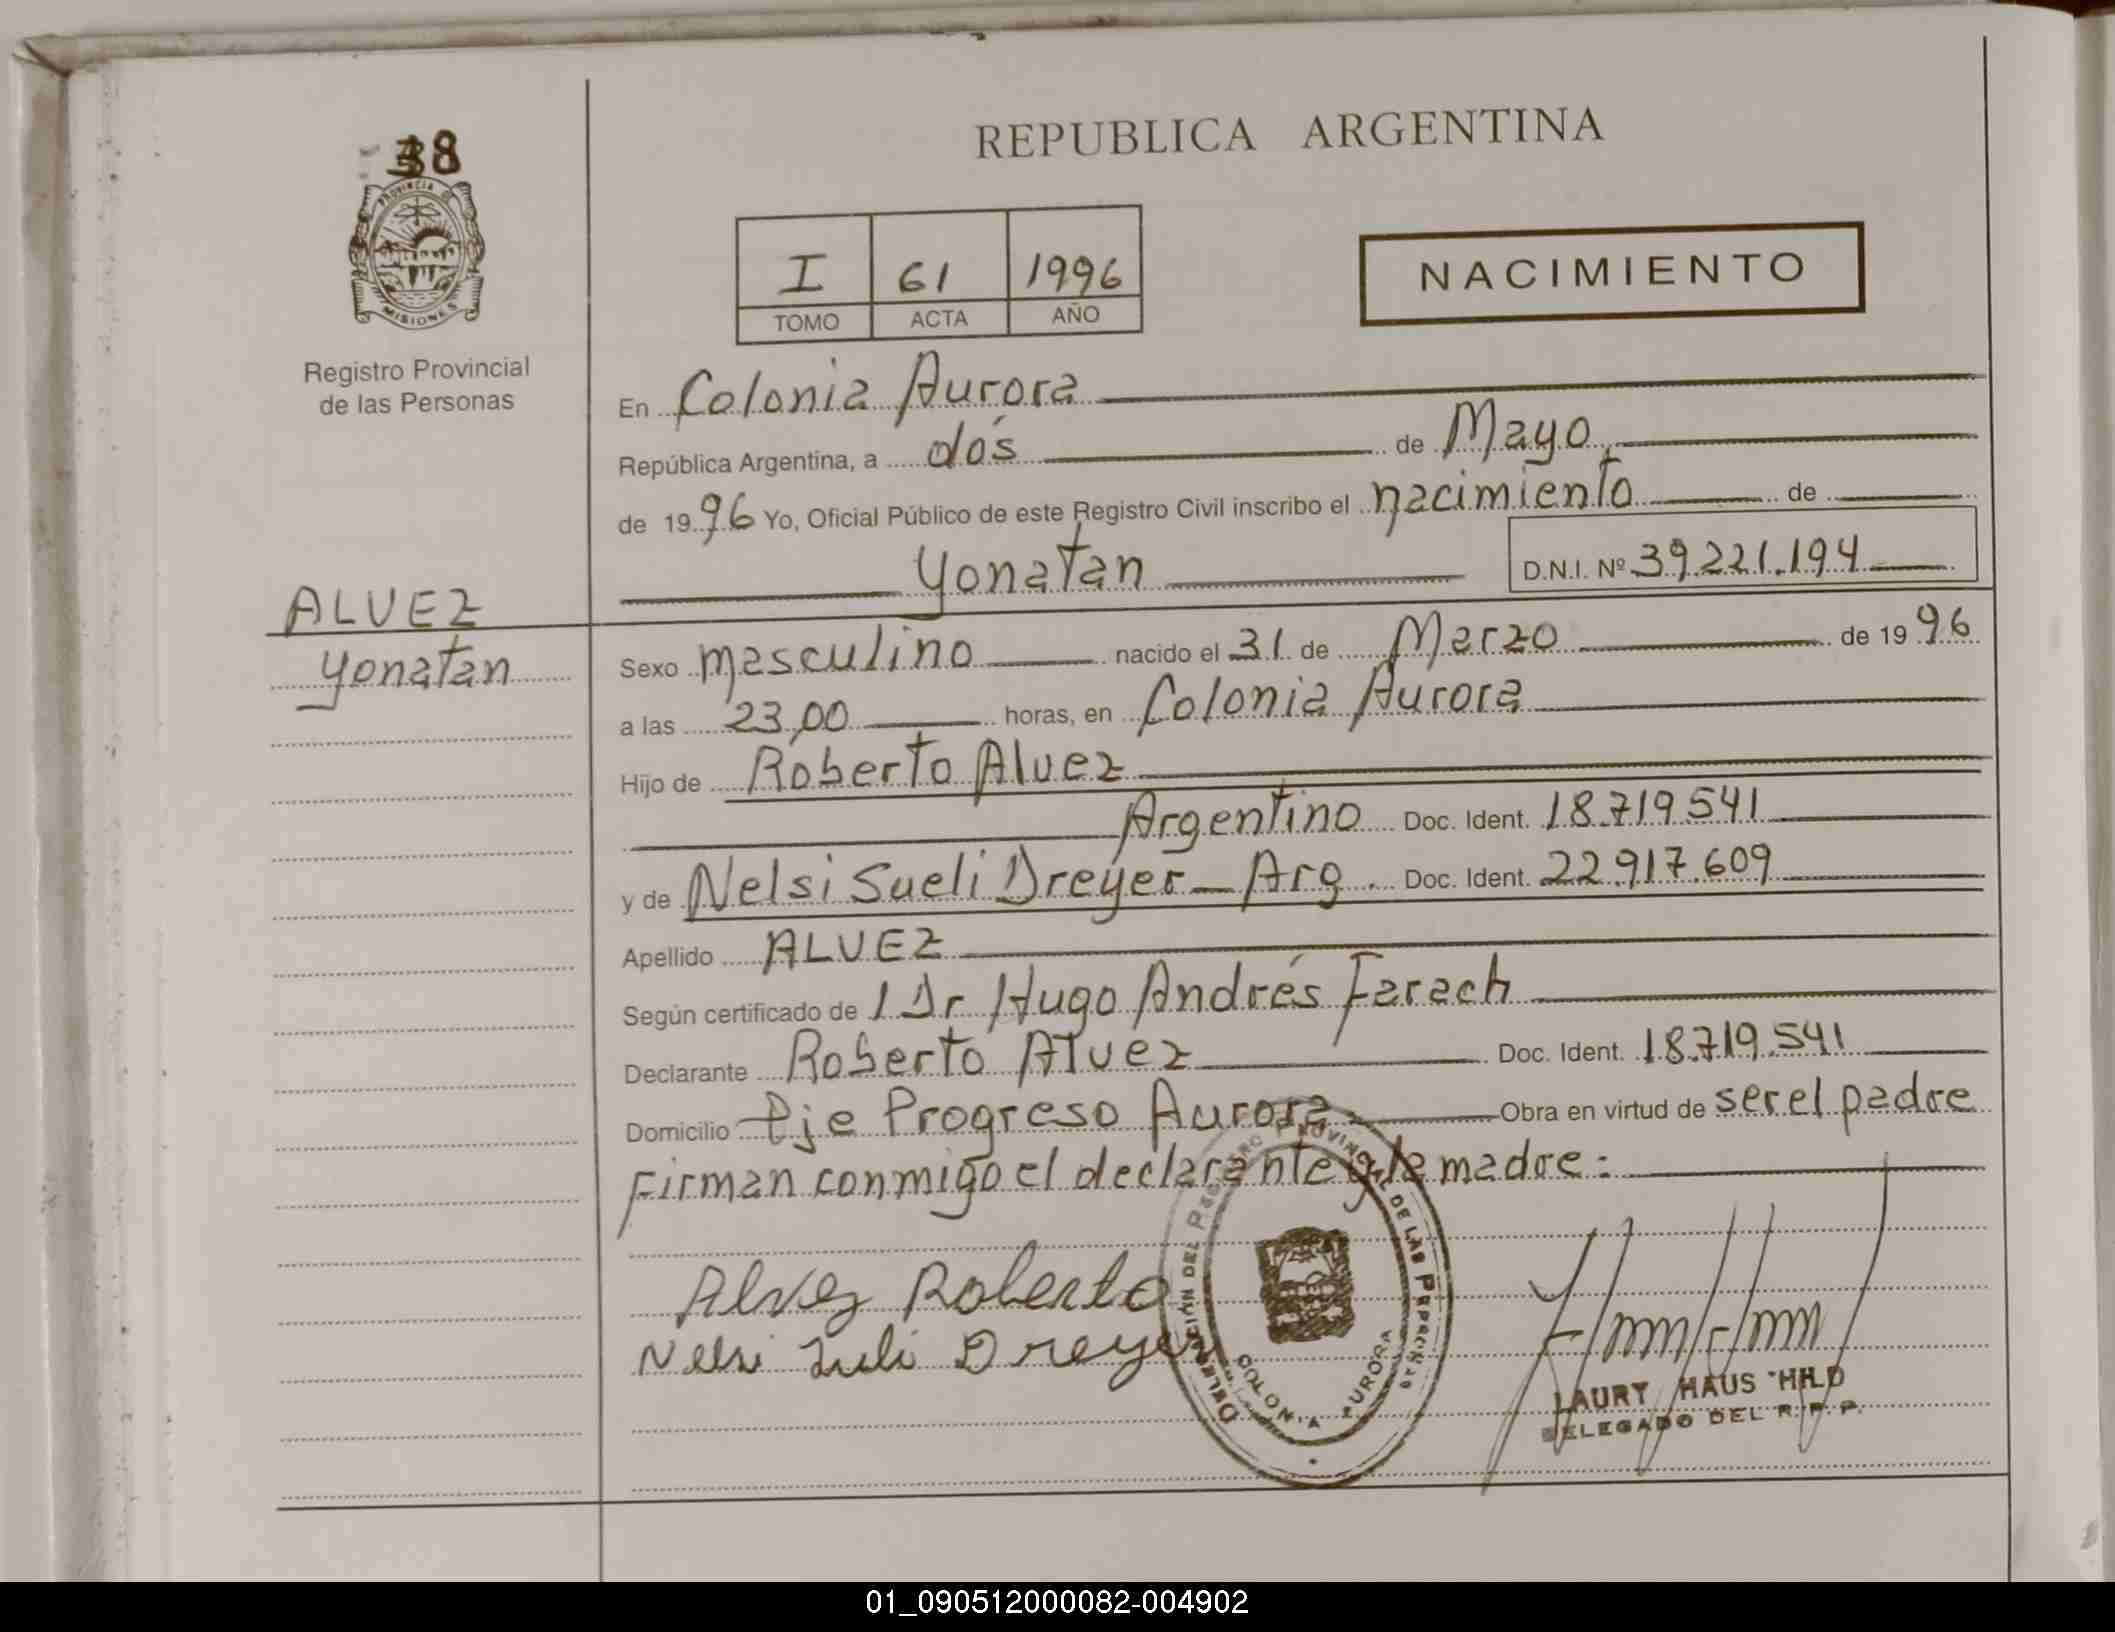 38
PROVINCIA DE
MISIONES
Registro Provincial
de las Personas
ALVEZ
Yonatan
REPUBLICA ARGENTINA
I 61 1996
TOMO ACTA AÑO
NACIMIENTO
En Colonia Aurora
República Argentina, a dós de Mayo
de 1996 Yo, Oficial Público de este Registro Civil inscribo el nacimiento de
Yonatan D.N.I. Nº 39.221.194
Sexo masculino nacido el 31 de Marzo de 1996
a las 23,00 horas, en Colonia Aurora
Hijo de Roberto Alvez
Argentino Doc. Ident. 18.719.541
y de Nelsi Sueli Dreyer - Arg. Doc. Ident. 22.917.609
Apellido ALVEZ
Según certificado de l Dr Hugo Andrés Farach
Declarante Roberto Alvez Doc. Ident. 18.719.541
Domicilio Eje Progreso Aurora Obra en virtud de ser el padre
Firman conmigo el declarante y la madre:
Alvez Roberto
Nelsi Suli Dreyer
DELEGACIÓN DEL REGISTRO PROVINCIAL DE LAS PERSONAS
COLONIA AURORA
LAURY HAUS HILD
DELEGADO DEL R. P. P.
01_090512000082-004902